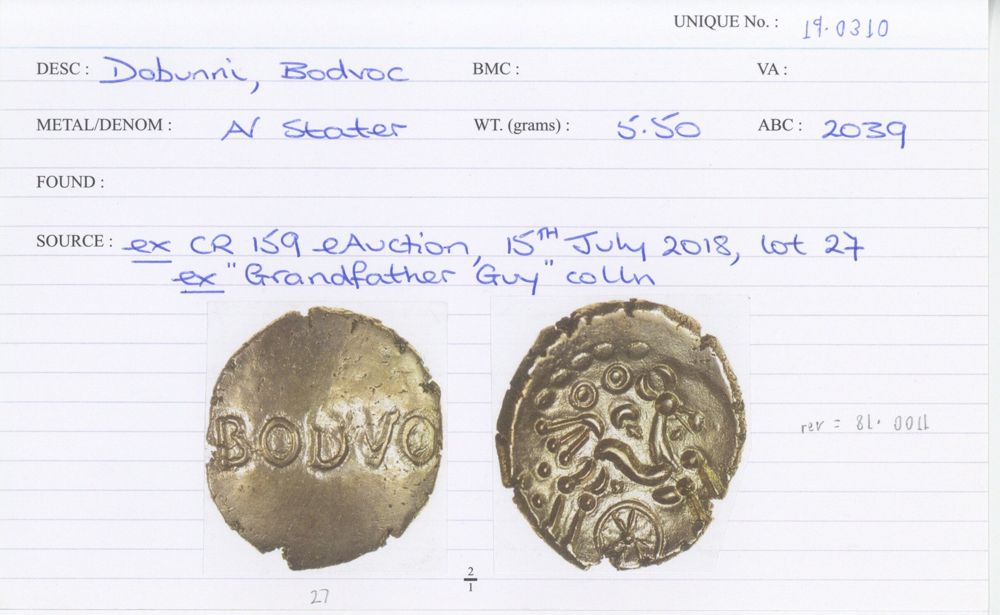 UNIQUE No. : 19.0310
DESC : Dobunni, Bodvoc BMC : VA :
METAL/DENOM : AV Stater WT. (grams) : 5.50 ABC : 2039
FOUND :
SOURCE : ex CR 159 eAuction, 15TH July 2018, lot 27
ex "Grandfather Guy" colln
BODVO
rev = 81.0011
2
1
27